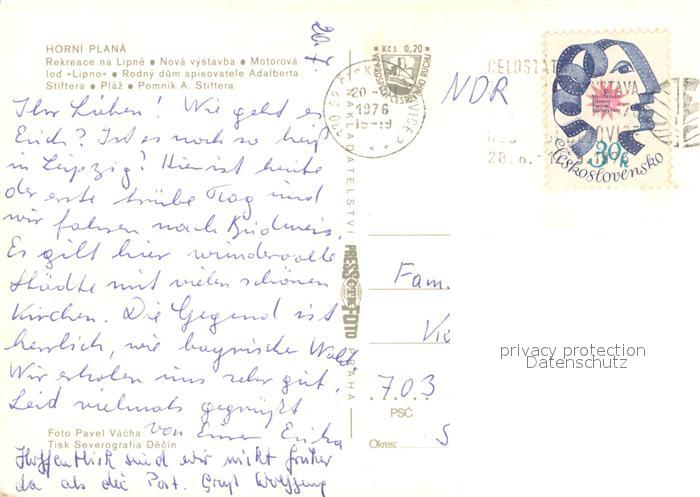 HORNÍ PLANÁ
Rekreace na Lipně • Nová výstavba • Motorová
loď »Lipno« • Rodný dům spisovatele Adalberta
Stiftera • Pláž • Pomník A. Stiftera
20.7.
Ihr Lieben! Wie geht es
Euch? Ist es noch so heiß
in Leipzig? Hier ist heute
der erste trübe Tag und
wir fahren nach Budweis.
Es gibt hier wundervolle
Städte mit vielen schönen
Kirchen. Die Gegend ist
herrlich, wie bayrischer Wald.
Wir erholen uns sehr gut.
Seid vielmals gegrüßt
von Eurer Erika
Hoffentlich sind wir nicht früher
da als die Post. Gruß Wolfgang
Foto Pavel Vácha
Tisk Severografia Děčín
NAKLADATELSTVÍ
PRESSFOTO
PRAHA
Kčs 0,20
20
1976
15-19
NDR
CELOSTÁT
STAVA
20.6.
30h
Československo
Fam.
703
PSČ
Okres:
S
privacy protection
Datenschutz